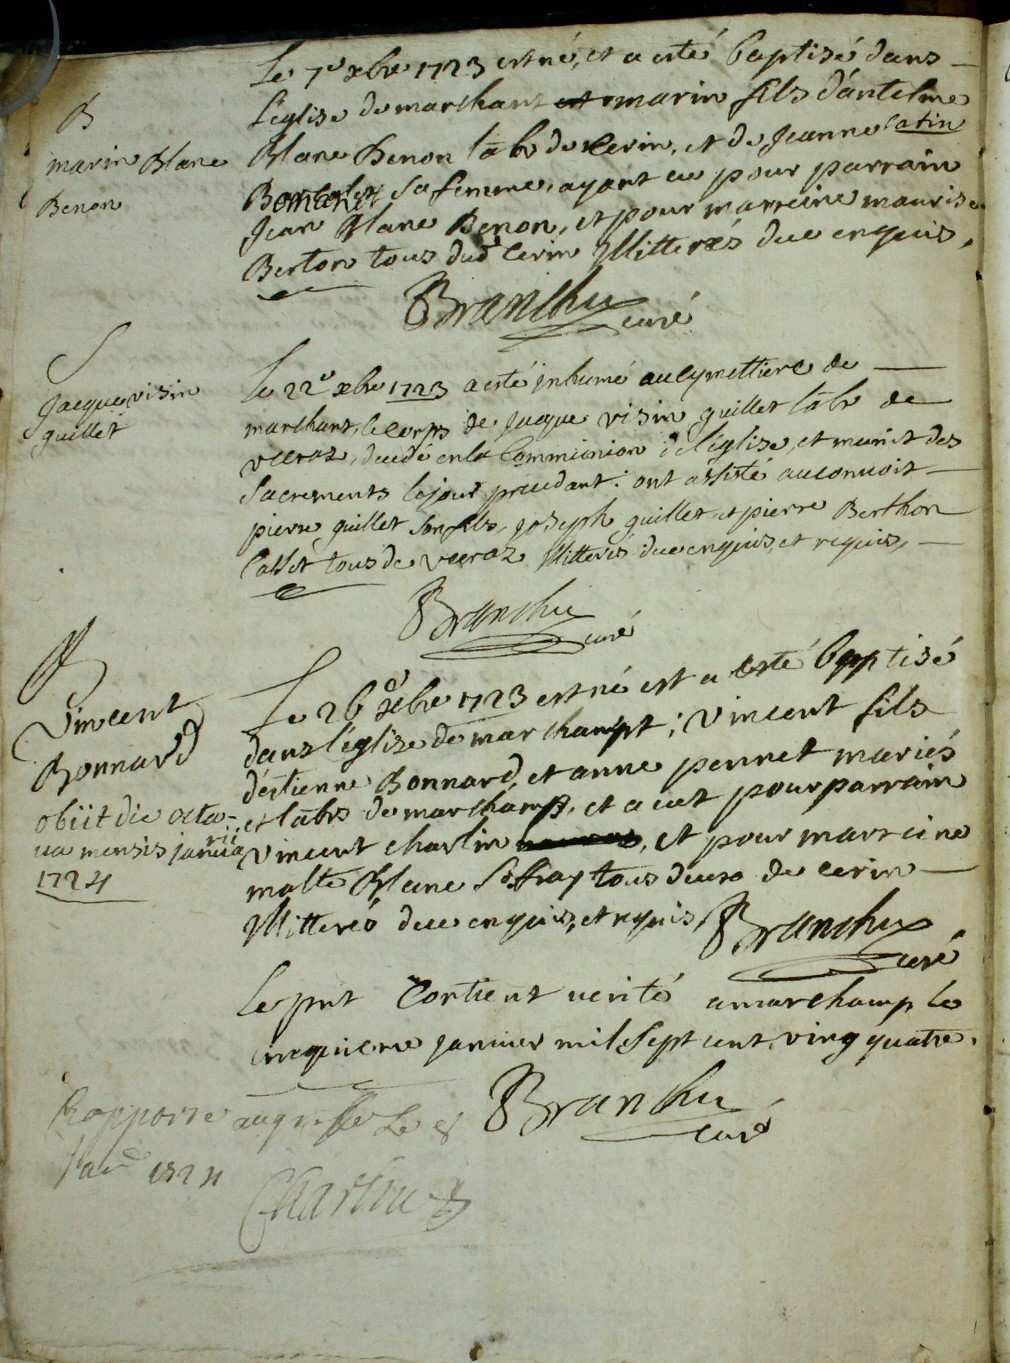 Le 7e xbre 1723 est né, et a esté baptisé dans
B
l'église de marchant marin fils d'antelme
marin Blanc
Benon
Blanc Benon labr de Cerin, et de Jeanne
sa femme, ayant eu pour parrain
Jean Blanc Benon, et pour marreine maurise
Berton tous dud Cerin Illitterés due enquis,
Branchu
curé
S
Jacque visin
guillet
Le 22e xbre 1723 a esté inhumé au cymettiere de
marchant, le corps de Jacque visin guillet labr de
veeraz, decedé en la Communion de l'église, et munit des
sacrements le jour precedant: ont assisté au convoit
pierre guillet son fils, Joseph guillet, et pierre Berthon
tous de veeraz Illitterés due enquis et requis,
Branchu
curé
B
Vincent
Bonnard
obiit die octa-
va mensis januarii
1724
Le 26e xbre 1723 est né est a esté baptisé
dans l'église de marchampt; Vincent fils
d'estienne Bonnard, et anne pernet mariés
et labrs de marchamp, et a eut pour parrain
vincent charlin, et pour marreine
Blanc tous deux de cerin
Illitterés due enquis, et requis, Branchu
curé
Le pnt Contient verité a marchamp le
cinquieme janvier mil sept cent ving quatre.
Branchu
curé
Rapporté au greffe Le 8
janr 1724
Charlin